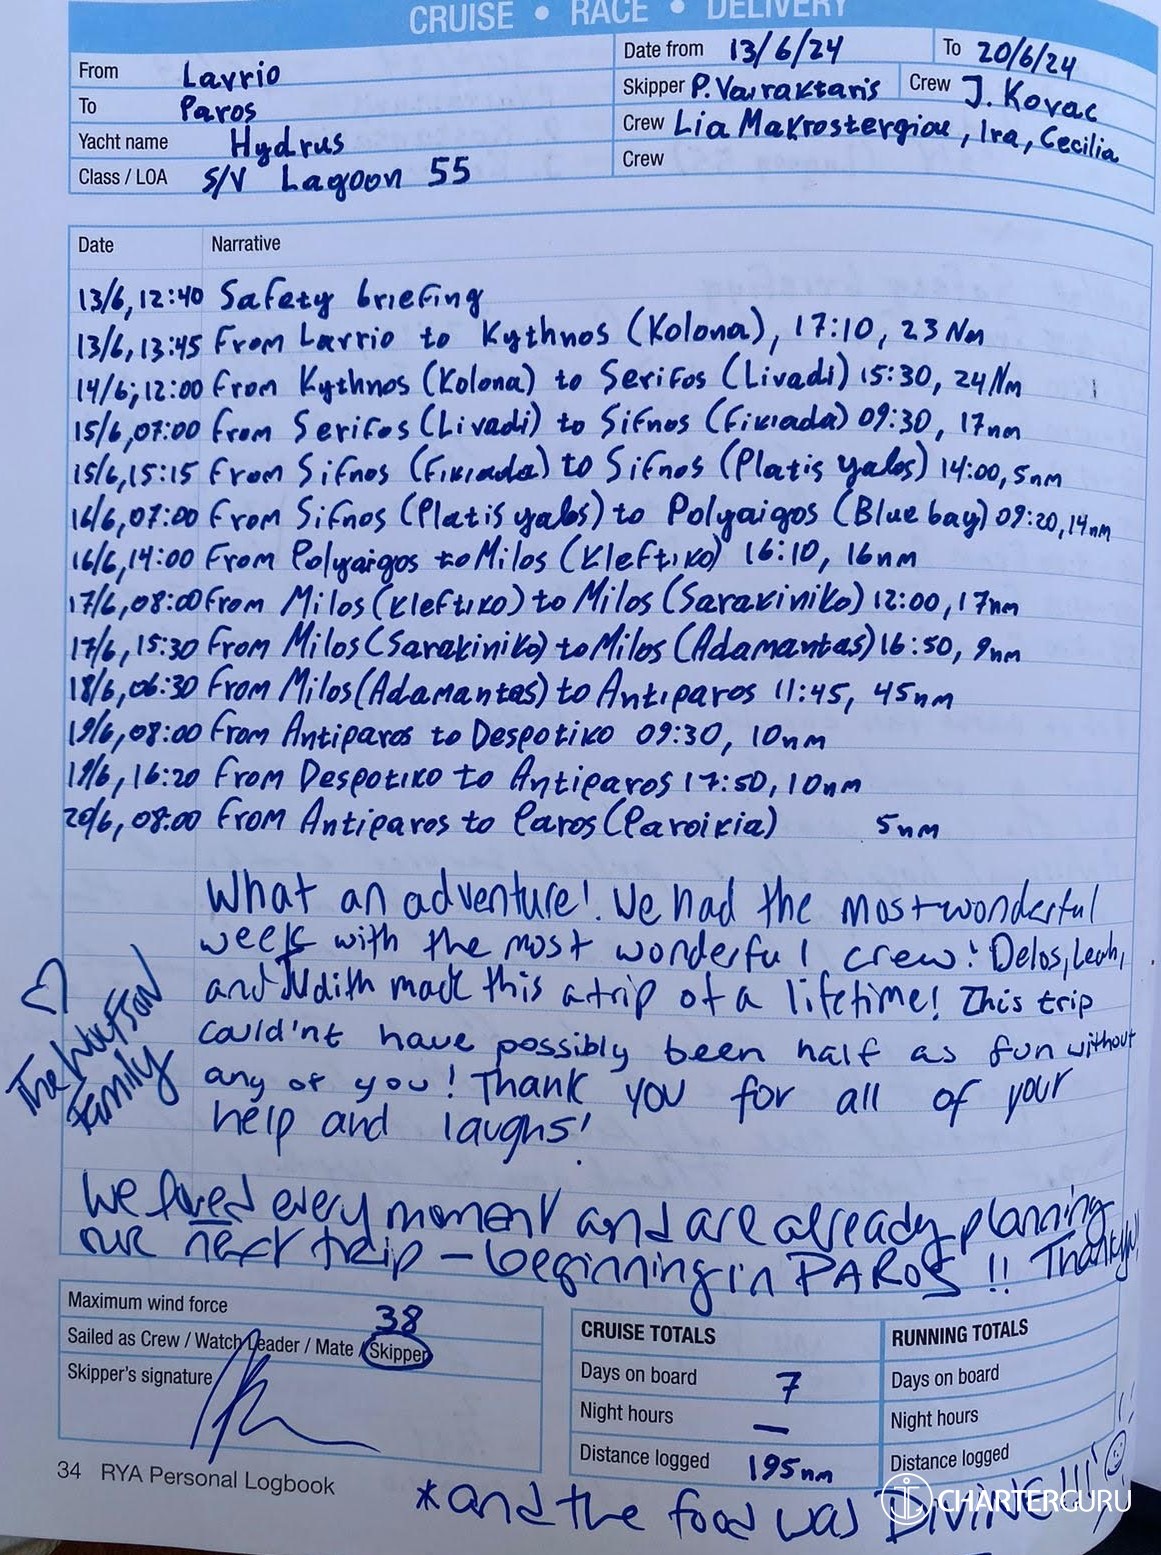 CRUISE • RACE • DELIVERY
From Lavrio
Date from 13/6/24 To 20/6/24
To Paros
Skipper P. Vavaktaris Crew J. Kovac
Yacht name Hydrus
Crew Lia Makrostergiou, Ira, Cecilia
Class / LOA S/V Lagoon 55
Crew
Date Narrative
13/6, 12:40 Safety briefing
13/6, 13:45 From Lavrio to Kythnos (Kolona), 17:10, 23 Nm
14/6; 12:00 From Kythnos (Kolona) to Serifos (Livadi) 15:30, 24 Nm
15/6, 07:00 From Serifos (Livadi) to Sifnos (Fikiada) 09:30, 17nm
15/6, 15:15 From Sifnos (Fikiada) to Sifnos (Platis yalos) 14:00, 5nm
16/6, 07:00 From Sifnos (Platis yalos) to Polyaigos (Blue bay) 09:20, 14nm
16/6, 14:00 From Polyaigos to Milos (Kleftiko) 16:10, 16nm
17/6, 08:00 From Milos (Kleftiko) to Milos (Sarakiniko) 12:00, 17nm
17/6, 15:30 From Milos (Sarakiniko) to Milos (Adamantas) 16:50, 9nm
18/6, 06:30 From Milos (Adamantas) to Antiparos 11:45, 45nm
19/6, 08:00 From Antiparos to Despotiko 09:30, 10nm
19/6, 16:20 From Despotiko to Antiparos 17:50, 10nm
20/6, 08:00 From Antiparos to Paros (Paroikia) 5nm
What an adventure! We had the most wonderful
week with the most wonderful crew! Delos, Leah,
and Judith made this a trip of a lifetime! This trip
could'nt have possibly been half as fun without
any of you! Thank you for all of your
help and laughs!
The
Family
We loved every moment and are already planning
our next trip – beginning in PAROS!! Thank you!
Maximum wind force 38
Sailed as Crew / Watch Leader / Mate / Skipper
Skipper's signature
CRUISE TOTALS
Days on board 7
Night hours —
Distance logged 195nm
RUNNING TOTALS
Days on board
Night hours
Distance logged
34 RYA Personal Logbook
*and the food was DIVINE!!!
CHARTERGURU